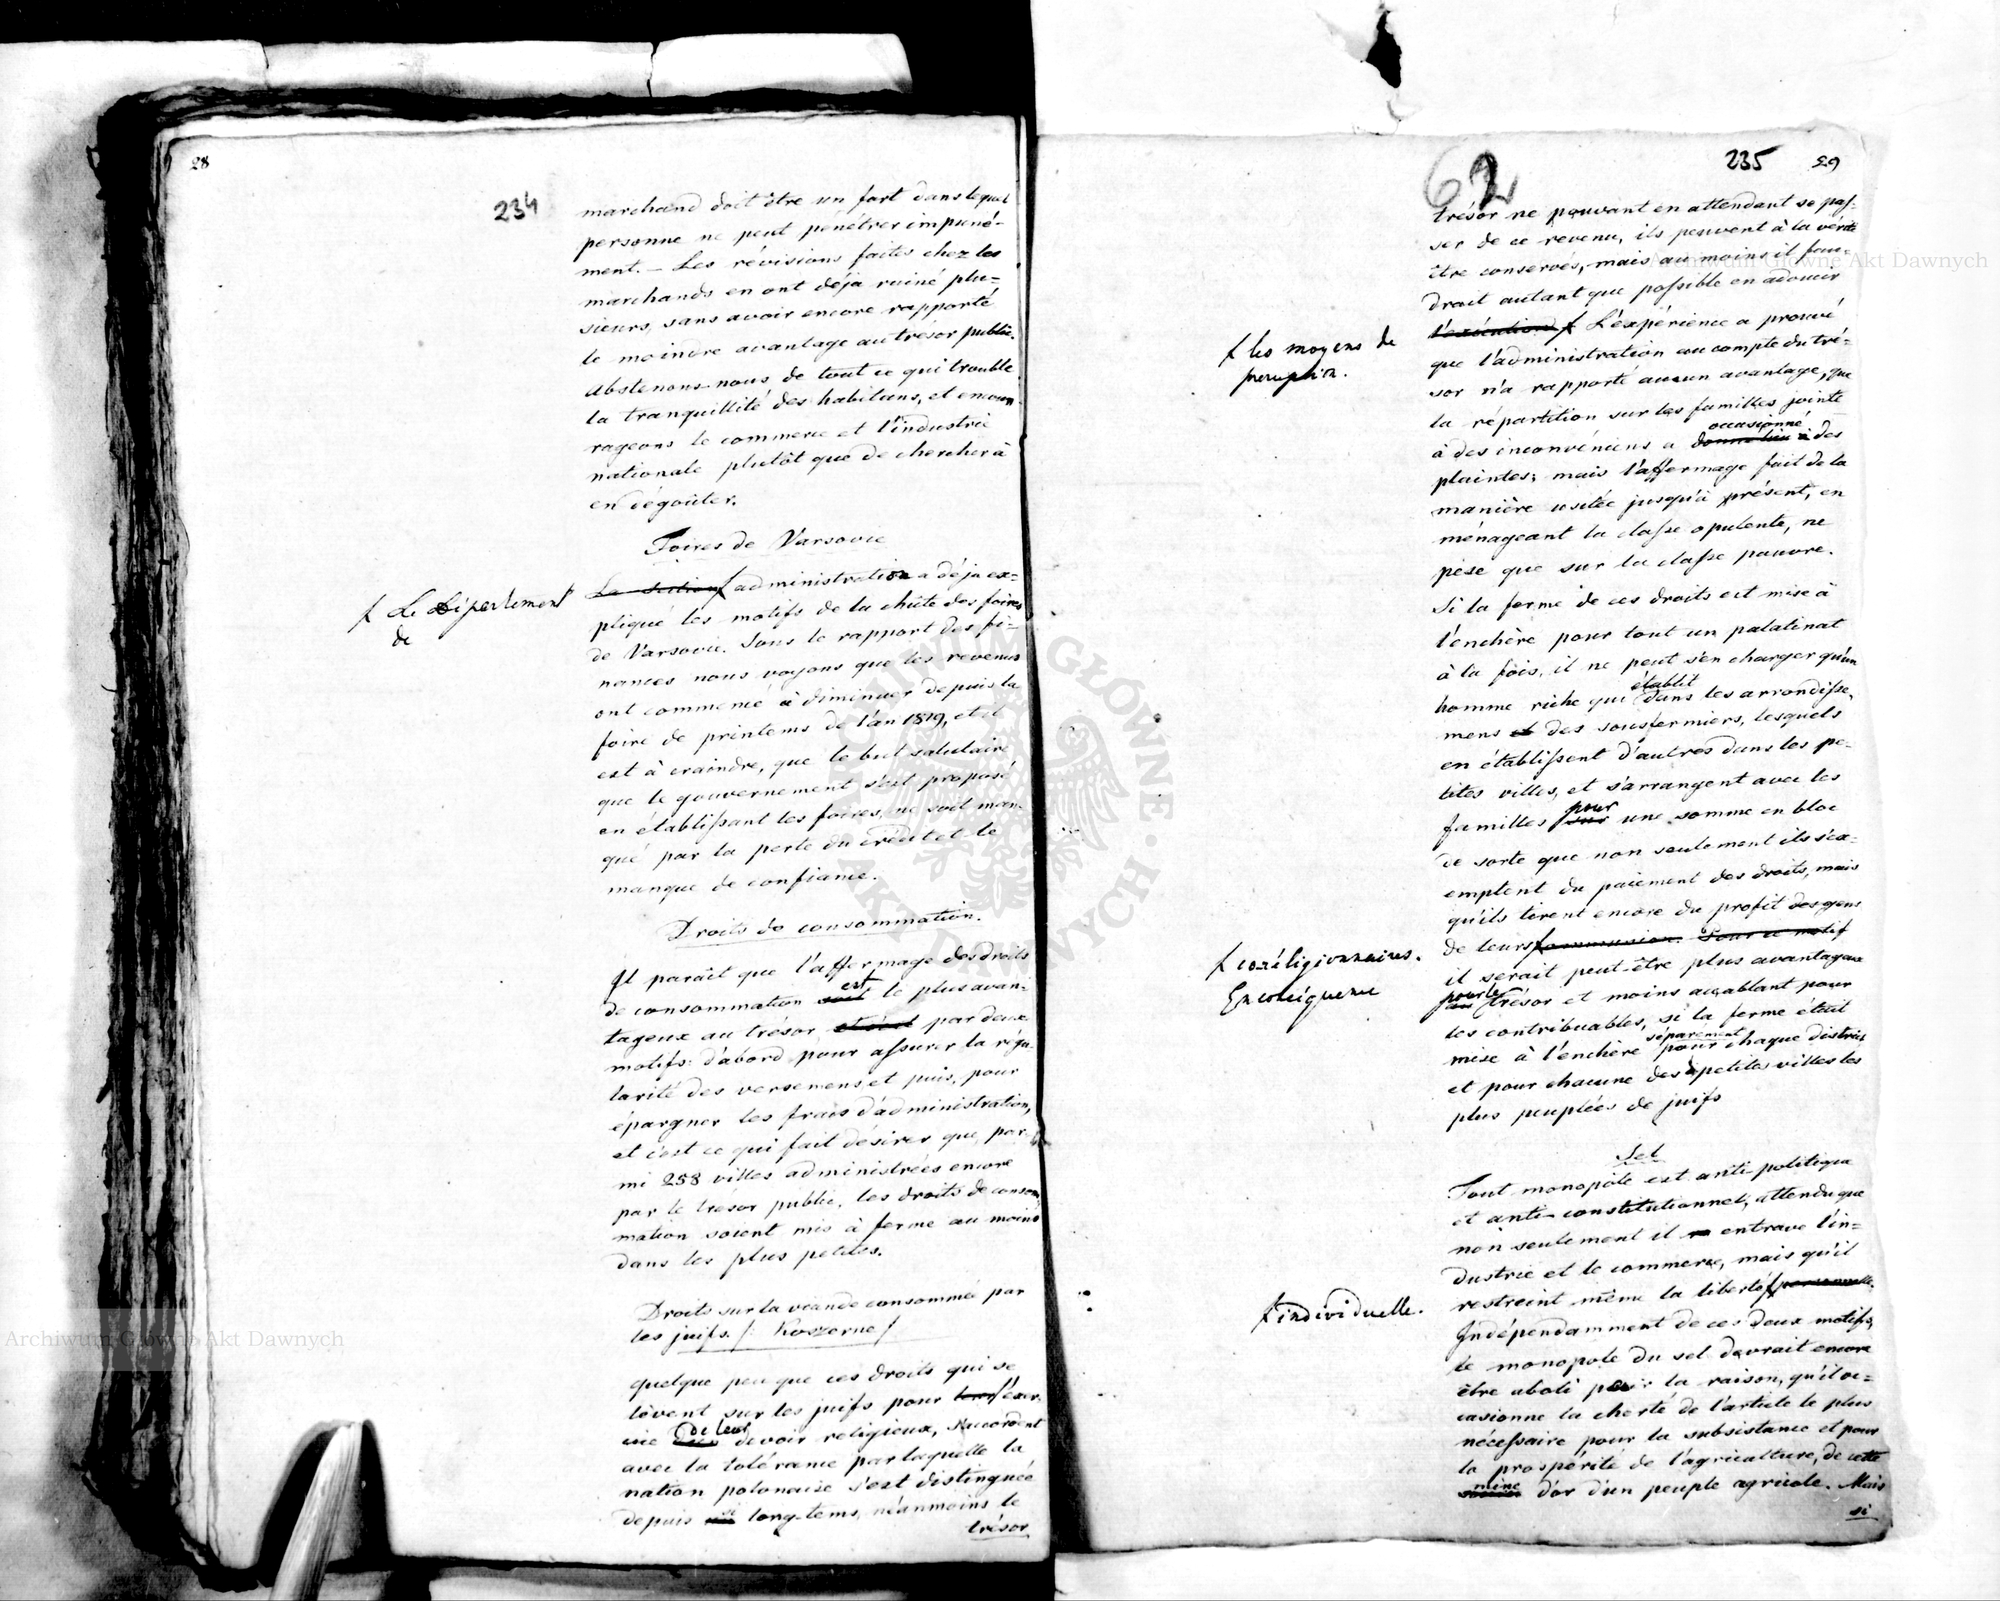 28
234
marchand doit être un fort dans lequel
personne ne peut pénétrer impuné-
ment. – Les révisions faites chez les
marchands en ont déja ruiné plu-
sieurs, sans avoir encore rapporté
le moindre avantage au trésor public.
Abstenons-nous de tout ce qui trouble
la tranquillité des habitans, et encou-
rageons le commerce et l'industrie
nationale plutôt que de chercher à
en dégoûter.
Foires de Varsovie
La section administration a déja ex-
Le Département
de
pliqué les motifs de la chûte des foires
de Varsovie. Sous le rapport des fi-
nances nous voyons que les revenus
ont commencé à diminuer depuis la
foire de printems de l'an 1819, et il
est à craindre, que le but salutaire
que le gouvernement s'est proposé
en établissant les foires, ne soit man-
qué par la perte du crédit et le
manque de confiance.
Droits de consommation.
Il paraît que l'affermage des droits
est
de consommation soit le plus avan-
tageux au trésor par deux
motifs: d'abord pour assurer la régu-
larité des versemens et puis, pour
épargner les frais d'administration,
et c'est ce qui fait désirer que, par-
mi 258 villes administrées encore
par le trésor public, les droits de consom-
mation soient mis à ferme au moins
dans les plus petites.
Droits sur la viande consommée par
les juifs /: Koszerne /
Quelque peu que ces droits qui se
lèvent sur les juifs pour leur l'exer-
de leur
cice devoir religieux, s'accordent
avec la tolérance par laquelle la
nation polonaise s'est distinguée
depuis si long-tems, néanmoins le
trésor
62
235
29
trésor ne pouvant en attendant se pas-
ser de ce revenu, ils peuvent à la vérité
être conservés, mais au moins il fau-
drait autant que possible en adoucir
l'exécution L'expérience a prouvé
les moyens de
perception.
que l'administration au compte du tré-
sor n'a rapporté aucun avantage, que
la répartition sur les familles jointe
occasionné
à des inconvéniens a donné lieu à des
plaintes; mais l'affermage fait de la
manière usitée jusqu'à présent, en
ménageant la classe opulente, ne
pèse que sur la classe pauvre.
Si la ferme de ces droits est mise à
l'enchère pour tout un palatinat
à la fois, il ne peut s'en charger qu'un
établit
homme riche qui dans les arrondisse-
mens et des sousfermiers, lesquels
en établissent d'autres dans les pe-
tites villes, et s'arrangent avec les
pour
familles sur une somme en bloc
de sorte que non seulement ils s'ex-
emptent du paiement des droits, mais
qu'ils tirent encore du profit des gens
de leurs communion. Pour ce motif
coréligionnaires.
En conséquence
il serait peut-être plus avantageux
pour le
au trésor et moins accablant pour
les contribuables, si la ferme était
séparement
mise à l'enchère pour chaque district
et pour chacune des petites villes les
plus peuplées de juifs
Sel
Tout monopole est anti-politique
et anti-constitutionnel, attendu que
non seulement il entrave l'in-
dustrie et le commerce, mais qu'il
restreint même la liberté personnelle.
individuelle.
Indépendamment de ces deux motifs,
le monopole du sel devrait encore
être aboli par la raison, qu'il oc-
casionne la cherté de l'article le plus
nécessaire pour la subsistance et pour
la prospérité de l'agriculture, de cette
mine
d'or d'un peuple agricole. Mais
si
Archiwum Główne Akt Dawnych
Archiwum Główne Akt Dawnych
ARCHIWUM GŁÓWNE AKT DAWNYCH